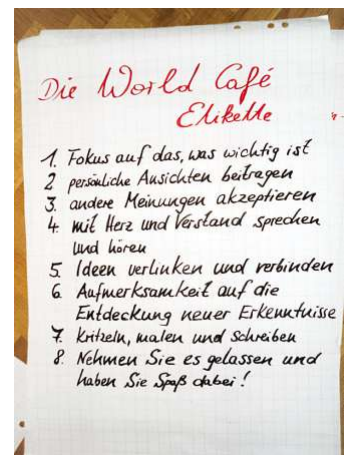 Die World Café
Etikette
1. Fokus auf das, was wichtig ist
2 persönliche Ansichten beitragen
3. andere Meinungen akzeptieren
4. mit Herz und Verstand sprechen
und hören
5. Ideen verlinken und verbinden
6. Aufmerksamkeit auf die
Entdeckung neuer Erkenntnisse
7. Kritzeln, malen und schreiben
8. Nehmen Sie es gelassen und
haben Sie Spaß dabei!